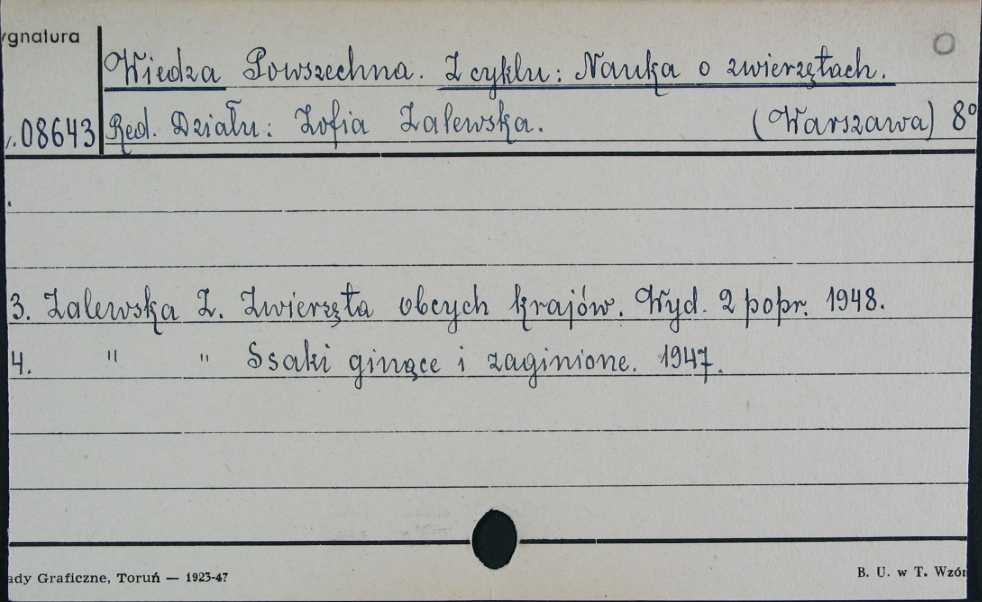 ygnatura
Wiedza Powszechna. Z cyklu: Nauka o zwierzętach.
08643 Red. Działu: Zofia Zalewska. (Warszawa) 8°
3. Zalewska Z. Zwierzęta obcych krajów. Wyd. 2 popr. 1948.
4. " " Ssaki ginące i zaginione. 1947.
ady Graficzne, Toruń — 1923-47 B. U. w T. Wzór